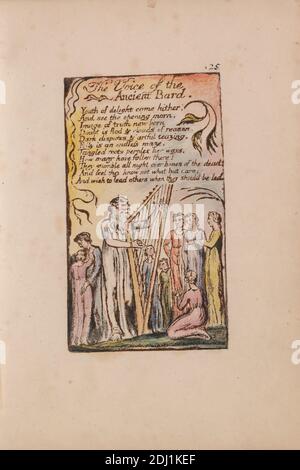 25
The Voice of the
Ancient Bard.
Youth of delight come hither,
And see the opening morn,
Image of truth new born.
Doubt is fled & clouds of reason.
Dark disputes & artful teazing.
Folly is an endless maze,
Tangled roots perplex her ways,
How many have fallen there!
They stumble all night over bones of the dead:
And feel they know not what but care;
And wish to lead others when they should be led.
2DJ1KEF